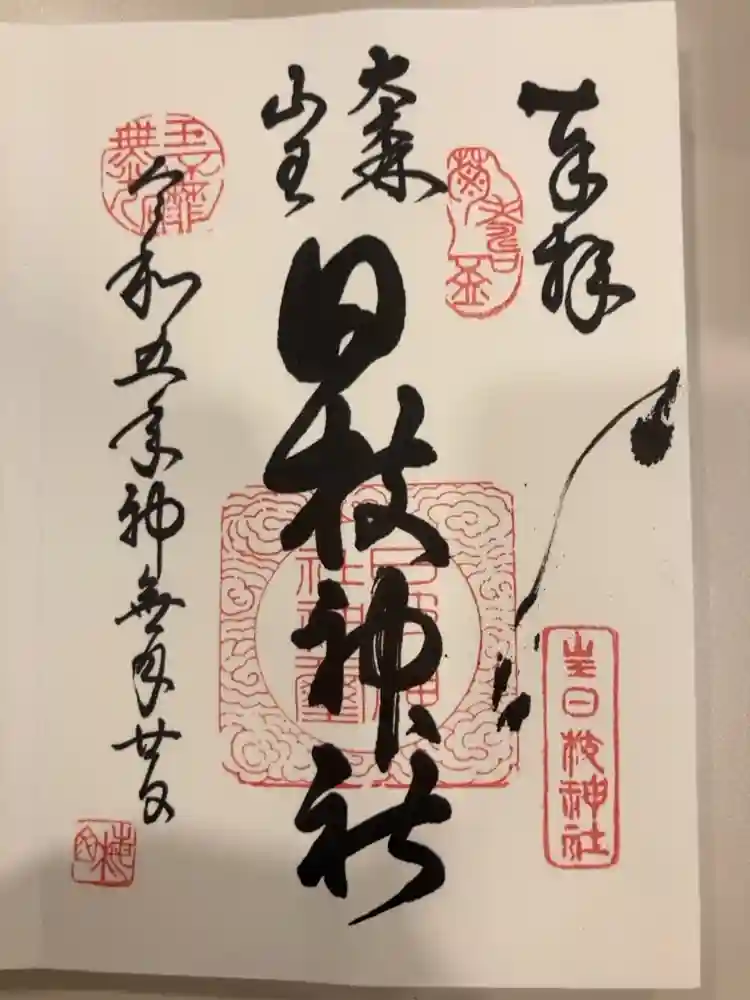 奉拝
山王日枝神社
大森
山王
日枝神社
令和五年神無月廿日